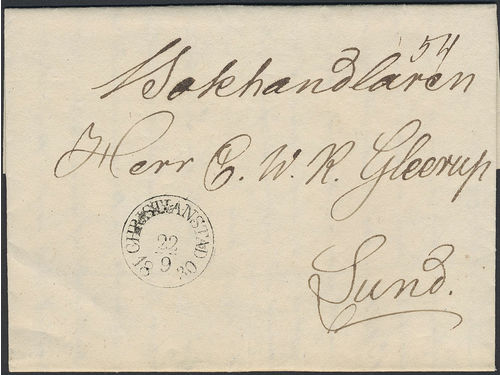 54
Bokhandlaren
Herr C. W. K. Gleerup
Lund.
CHRISTIANSTAD
22
9
30